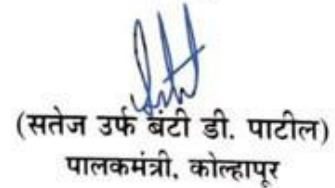 (सतेज उर्फ बंटी डी. पाटील)
पालकमंत्री, कोल्हापूर